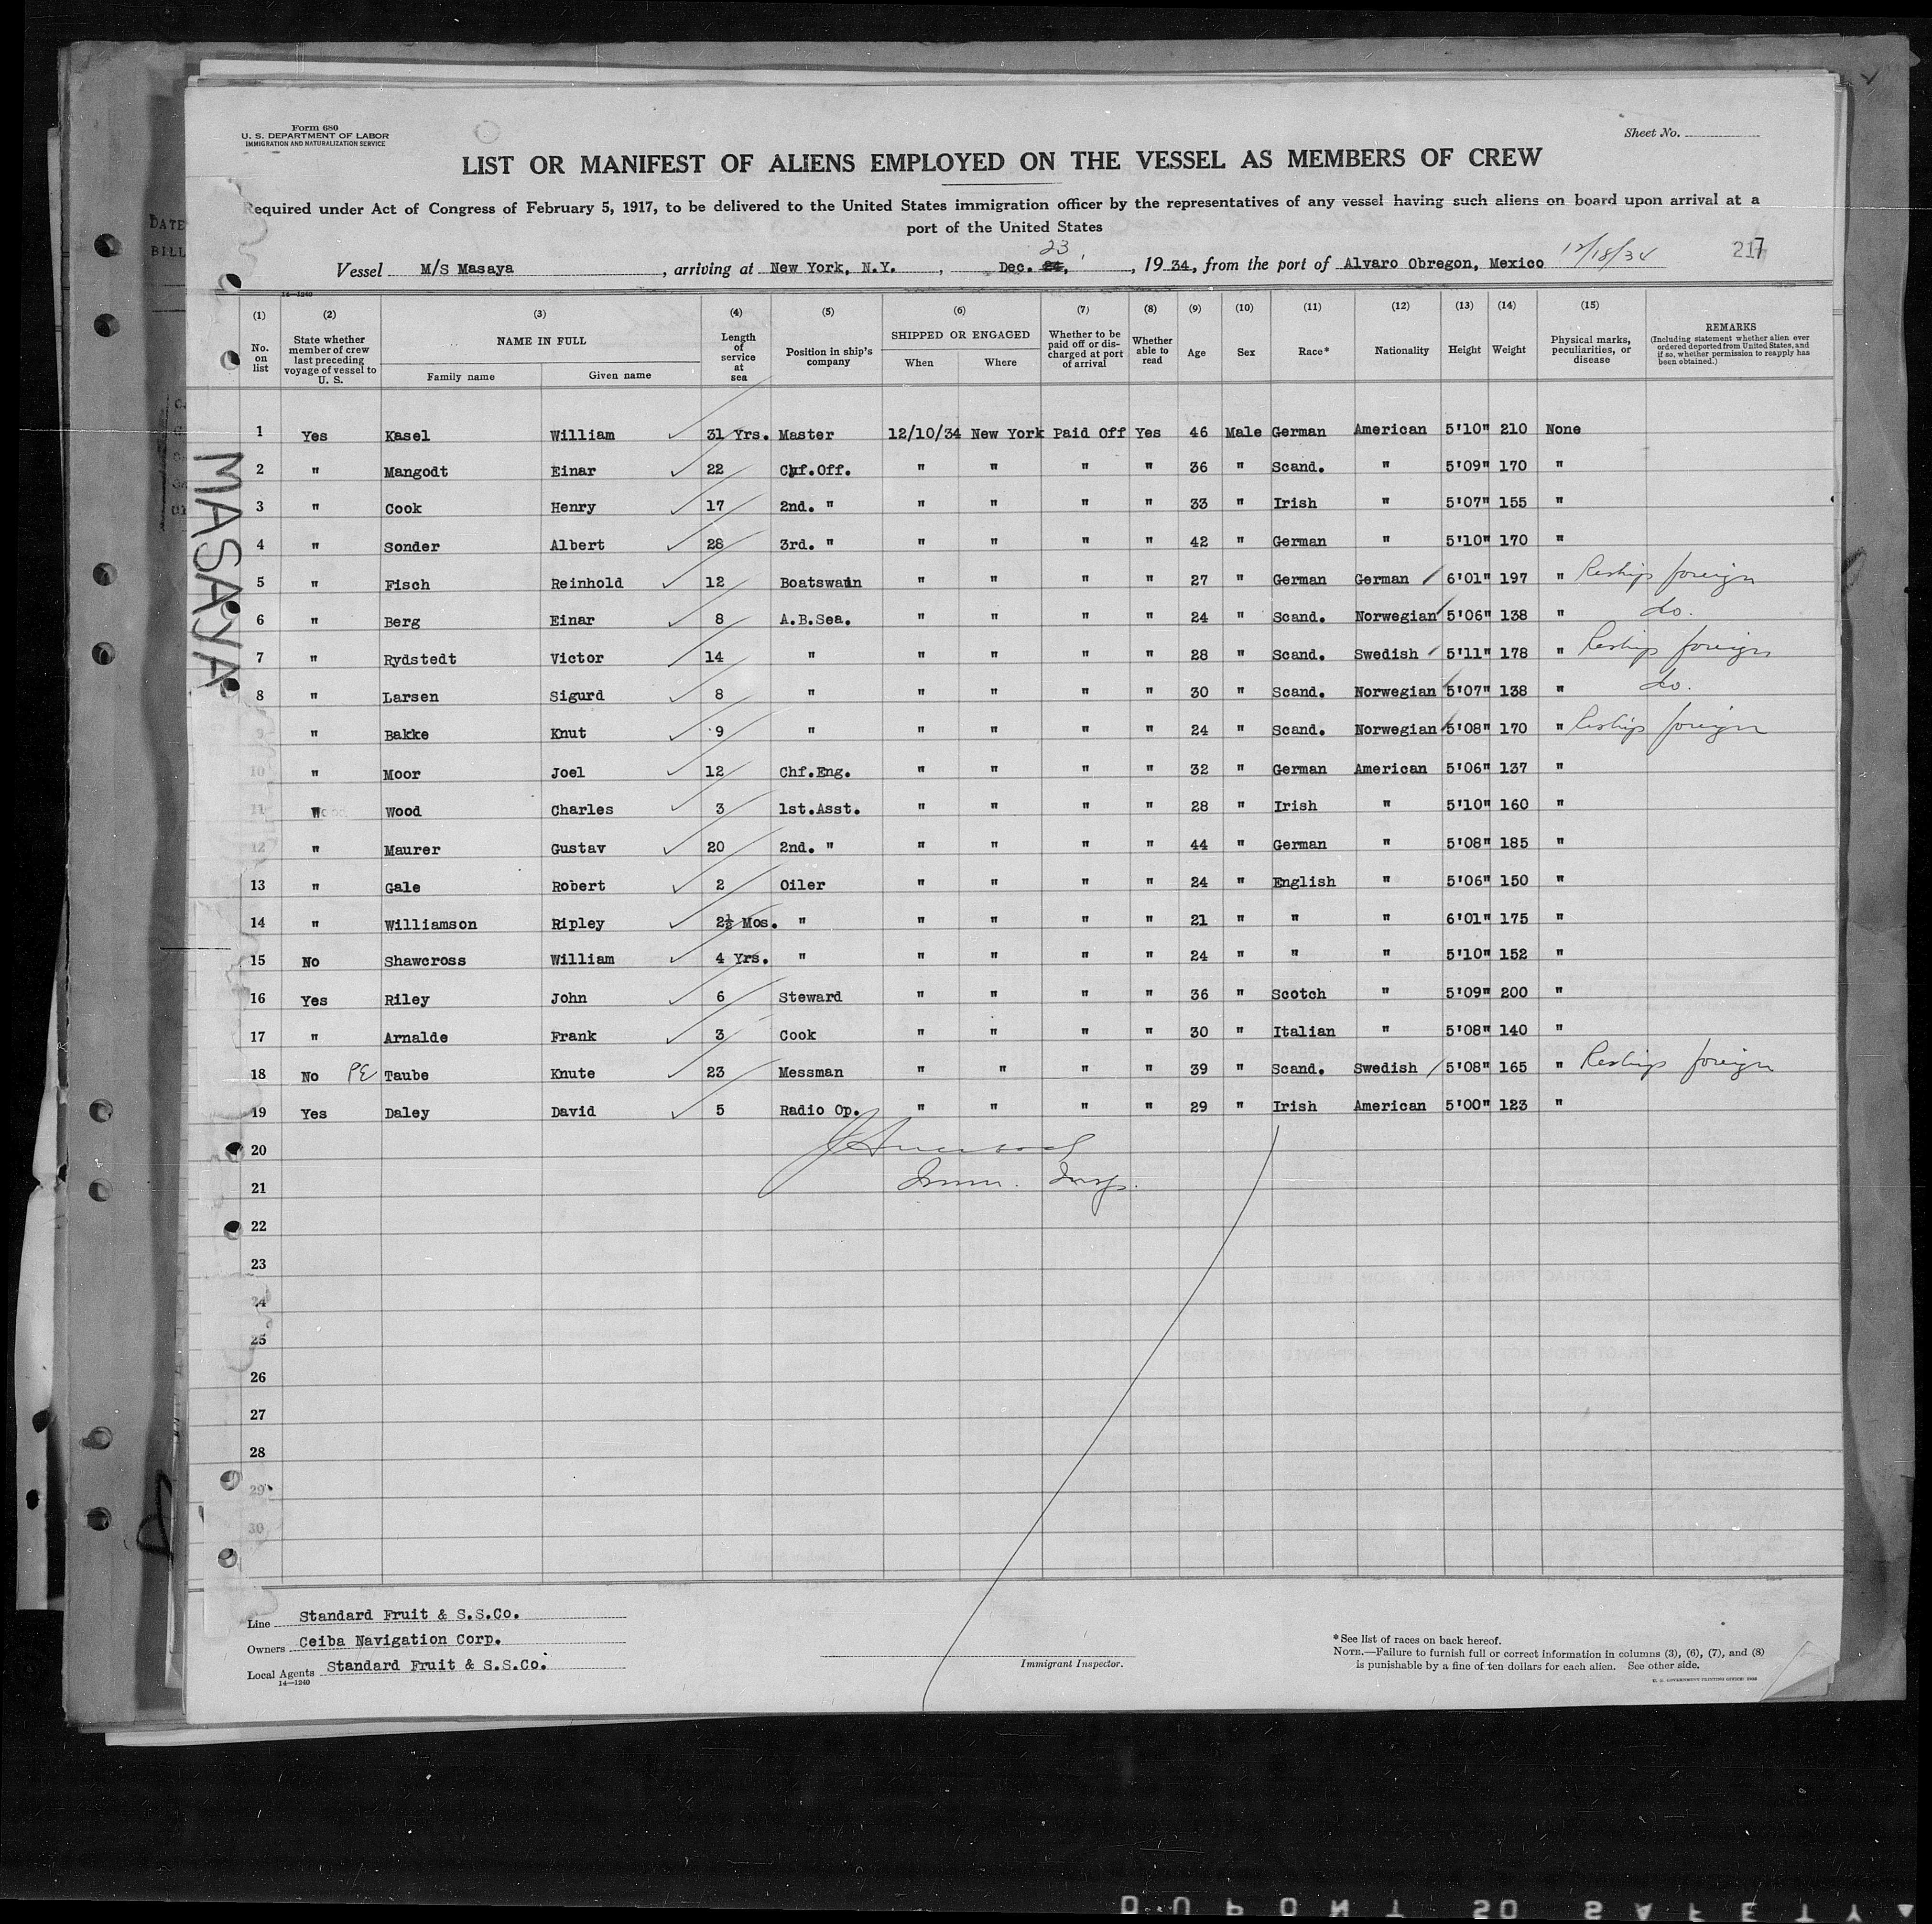 Form 680
U. S. DEPARTMENT OF LABOR
IMMIGRATION AND NATURALIZATION SERVICE
Sheet No.
LIST OR MANIFEST OF ALIENS EMPLOYED ON THE VESSEL AS MEMBERS OF CREW
Required under Act of Congress of February 5, 1917, to be delivered to the United States immigration officer by the representatives of any vessel having such aliens on board upon arrival at a
port of the United States
DATE
BILL
23
Vessel M/S Masaya, arriving at New York, N.Y., Dec. 24, 1934, from the port of Alvaro Obregon, Mexico 12/18/34 217
14—1240
(1) (2) (3) (4) (5) (6) (7) (8) (9) (10) (11) (12) (13) (14) (15)
No. on list
State whether member of crew last preceding voyage of vessel to U. S.
NAME IN FULL
Family name Given name
Length of service at sea
Position in ship's company
SHIPPED OR ENGAGED
When Where
Whether to be paid off or discharged at port of arrival
Whether able to read
Age
Sex
Race*
Nationality
Height
Weight
Physical marks, peculiarities, or disease
REMARKS
(Including statement whether alien ever ordered deported from United States, and if so, whether permission to reapply has been obtained.)
1 Yes Kasel William 31 Yrs. Master 12/10/34 New York Paid Off Yes 46 Male German American 5'10" 210 None
2 " Mangodt Einar 22 Chf.Off. " " " " 36 " Scand. " 5'09" 170 "
3 " Cook Henry 17 2nd. " " " " " 33 " Irish " 5'07" 155 "
4 " Sonder Albert 28 3rd. " " " " " 42 " German " 5'10" 170 "
5 " Fisch Reinhold 12 Boatswain " " " " 27 " German German 6'01" 197 " Reship foreign
6 " Berg Einar 8 A.B.Sea. " " " " 24 " Scand. Norwegian 5'06" 138 " do.
7 " Rydstedt Victor 14 " " " " " 28 " Scand. Swedish 5'11" 178 " Reship foreign
8 " Larsen Sigurd 8 " " " " " 30 " Scand. Norwegian 5'07" 138 " do.
9 " Bakke Knut 9 " " " " " 24 " Scand. Norwegian 5'08" 170 " Reship foreign
10 " Moor Joel 12 Chf.Eng. " " " " 32 " German American 5'06" 137 "
11 " Wood Charles 3 1st.Asst. " " " " 28 " Irish " 5'10" 160 "
12 " Maurer Gustav 20 2nd. " " " " " 44 " German " 5'08" 185 "
13 " Gale Robert 2 Oiler " " " " 24 " English " 5'06" 150 "
14 " Williamson Ripley 2½ Mos. " " " " " 21 " " " 6'01" 175 "
15 No Shawcross William 4 Yrs. " " " " " 24 " " " 5'10" 152 "
16 Yes Riley John 6 Steward " " " " 36 " Scotch " 5'09" 200 "
17 " Arnalde Frank 3 Cook " " " " 30 " Italian " 5'08" 140 "
18 No PE Taube Knute 23 Messman " " " " 39 " Scand. Swedish 5'08" 165 " Reship foreign
19 Yes Daley David 5 Radio Op. " " " " 29 " Irish American 5'00" 123 "
20
21 Imm. Insp.
22
23
24
25
26
27
28
29
30
MASAYA
Line Standard Fruit & S.S.Co.
Owners Ceiba Navigation Corp.
Local Agents Standard Fruit & S.S.Co.
14—1240
Immigrant Inspector.
*See list of races on back hereof.
NOTE.—Failure to furnish full or correct information in columns (3), (6), (7), and (8)
is punishable by a fine of ten dollars for each alien. See other side.
DUPONT SO SAFETY